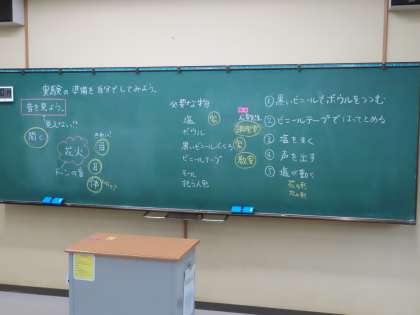 実験の準備を自分でしてみよう。
音を見よう。
見えない
聞く
花火
目
耳
ドーンの音
体
必要な物
塩
ボウル
黒いビニールぶくろ
ビニールテープ
モール
教室
① 黒いビニールでボウルをつつむ
② ビニールテープではってとめる
③ 塩をまく
④ 声を出す
⑤ 塩が動く